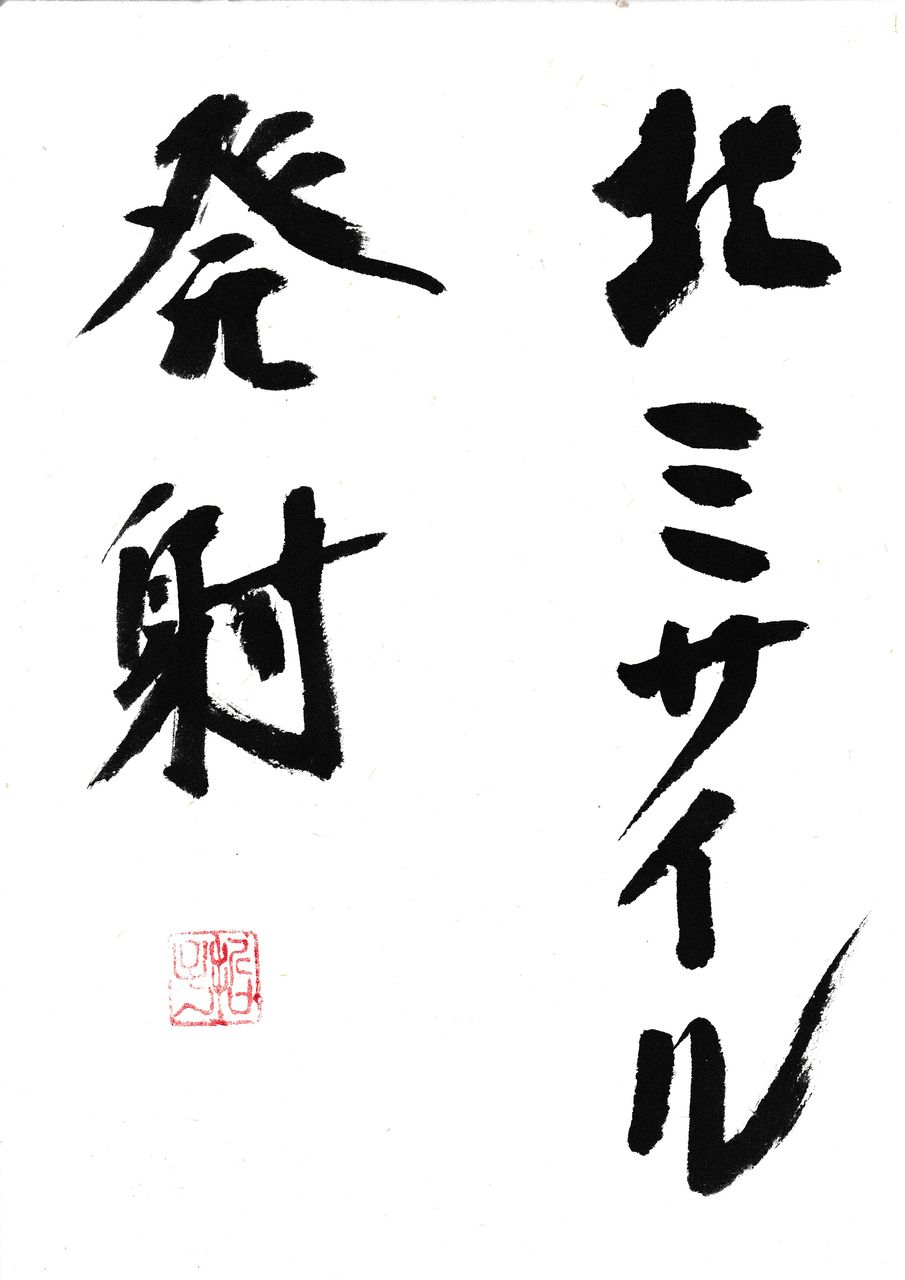 北ミサイル
発射